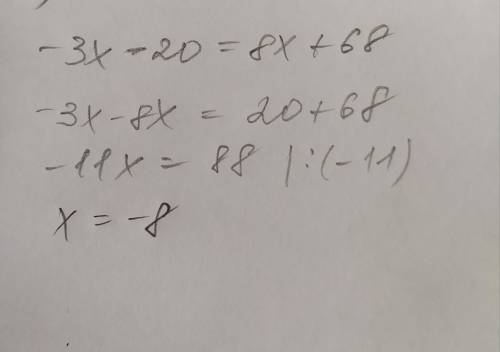 -3x - 20 = 8x + 68
-3x - 8x = 20 + 68
-11x = 88 | : (-11)
x = -8